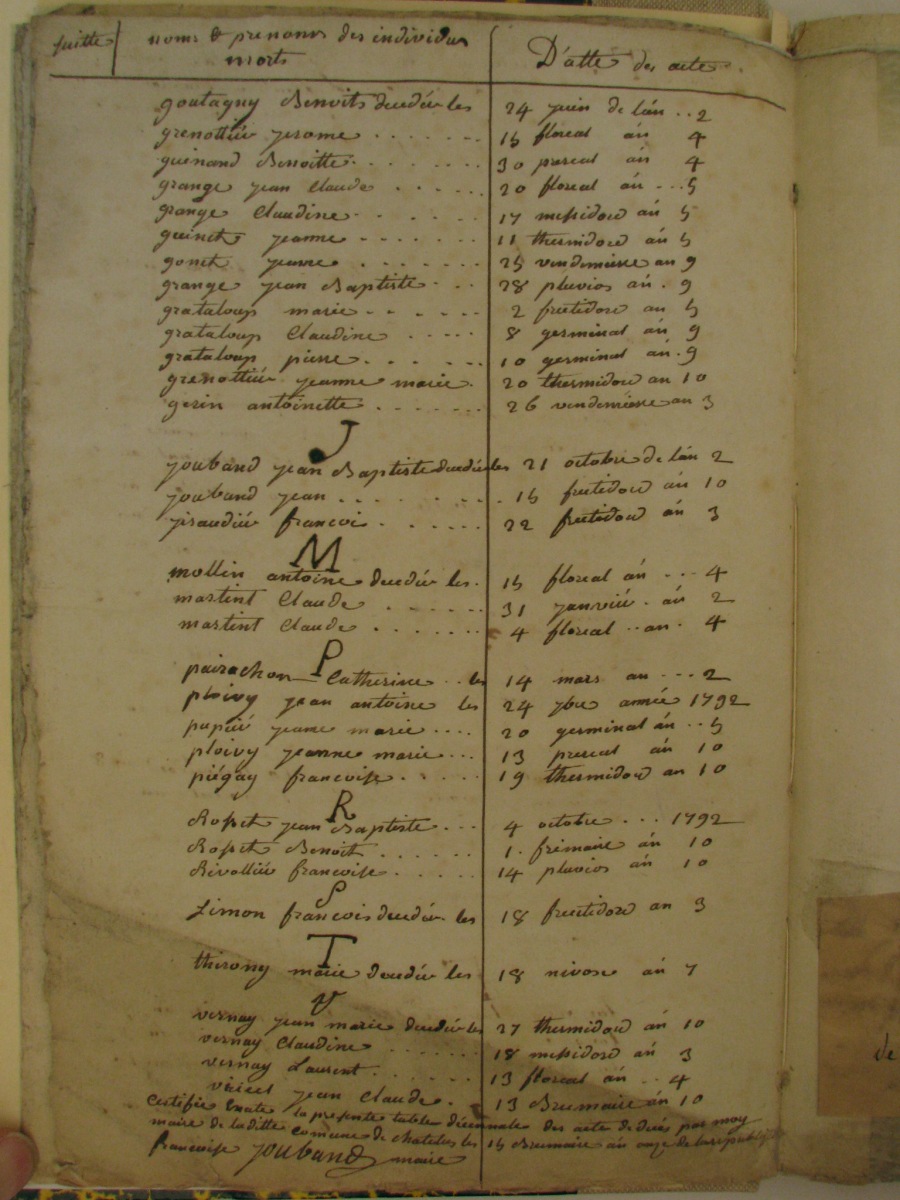 suitte noms & prenoms des individus morts D'atte des acte
goutagny Benoits decedér les 24 juin de l'án .. 2
grenottiér jerome 15 floreal án 4
guinand Benoitte 30 pareal án 4
grange jean Claude 20 floreal án ... 5
grange Claudine 17 messidord án 5
guinet jeanne 11 thermidord án 5
gonet jeanne 25 vendemiere an 9
grange jean Baptiste 28 pluvios an . 9
grataloup marie 2 fructidore an 5
grataloup Claudine 8 germinal án 9
grataloup pierre 10 germinal án . 9
grenottiér jeanne marie 20 thermidord an 10
gerin antoinette 26 vendemiere an 3
J
jouband jean Baptiste decedér les 21 octobre de l'án 2
jouband jean 15 fructidord án 10
jiraudiér francoi 22 fructidord án 3
M
mollin antoine decedér les 15 floreal án ... 4
martint Claude 31 janviér . án 2
martint Claude 4 floreal .. an . 4
P
pairachon Catherine .. les 14 mars an ... 2
ploivy jean antoine les 24 7bre année 1792
papiér jeanne marie 20 germinal án .. 5
ploivy jeanne marie 13 preseal án 10
piégay francoise 19 thermidord an 10
R
Rosset jean Baptiste 4 octobre ... 1792
Rosset Benoit 1. frimaire án 10
Rivolliér francoise 14 pluvios án 10
S
Simon francois decedér les 18 fructidord an 3
T
thirony marie decedér les 18 nivose án 7
V
vernay jean marie decedér les 27 thermidord án 10
vernay Claudine 18 messidord án 3
vernay Laurent 13 floreal án .. 4
viricel jean Claude . 13 Brumaire án 10
Certifie Exate la presente table décennale des acte de decés par moy
maire de laditte Comune de Chatelus les 15 Brumaire an onze de la republique
francoise Jouband maire
de